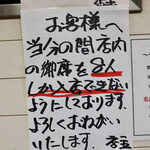 お客様へ
当分の間店内
の御席を8人
しか入店できない
ようにしております。
よろしくおねがい
いたします。 店主